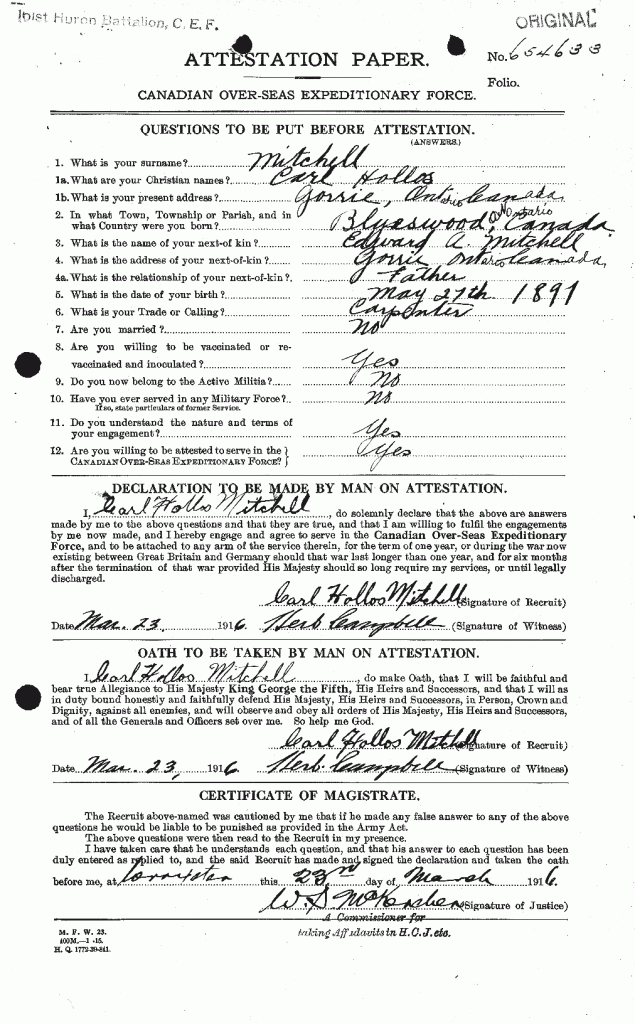 161st Huron Battalion, C. E. F.
ORIGINAL
ATTESTATION PAPER.
No. 654633
Folio.
CANADIAN OVER-SEAS EXPEDITIONARY FORCE.
QUESTIONS TO BE PUT BEFORE ATTESTATION.
(ANSWERS.)
1. What is your surname? Mitchell
1a. What are your Christian names? Carl Hollos
1b. What is your present address? Gorrie, Ontario Canada
2. In what Town, Township or Parish, and in
what Country were you born? Ontario Canada
3. What is the name of your next-of kin? Edward A. Mitchell
4. What is the address of your next-of-kin? Gorrie Ontario Canada
4a. What is the relationship of your next-of-kin? Father
5. What is the date of your birth? May 27th 1891
6. What is your Trade or Calling? Carpenter
7. Are you married? No
8. Are you willing to be vaccinated or re-
vaccinated and inoculated? Yes
9. Do you now belong to the Active Militia? No
10. Have you ever served in any Military Force? No
If so, state particulars of former Service.
11. Do you understand the nature and terms of
your engagement? Yes
12. Are you willing to be attested to serve in the
CANADIAN OVER-SEAS EXPEDITIONARY FORCE? Yes
DECLARATION TO BE MADE BY MAN ON ATTESTATION.
I, Carl Hollos Mitchell, do solemnly declare that the above are answers
made by me to the above questions and that they are true, and that I am willing to fulfil the engagements
by me now made, and I hereby engage and agree to serve in the Canadian Over-Seas Expeditionary
Force, and to be attached to any arm of the service therein, for the term of one year, or during the war now
existing between Great Britain and Germany should that war last longer than one year, and for six months
after the termination of that war provided His Majesty should so long require my services, or until legally
discharged.
Carl Hollos Mitchell (Signature of Recruit)
Date Mar. 23. 1916. Herb Campbell (Signature of Witness)
OATH TO BE TAKEN BY MAN ON ATTESTATION.
I, Carl Hollos Mitchell, do make Oath, that I will be faithful and
bear true Allegiance to His Majesty King George the Fifth, His Heirs and Successors, and that I will as
in duty bound honestly and faithfully defend His Majesty, His Heirs and Successors, in Person, Crown and
Dignity, against all enemies, and will observe and obey all orders of His Majesty, His Heirs and Successors,
and of all the Generals and Officers set over me. So help me God.
Carl Hollos Mitchell (Signature of Recruit)
Date Mar. 23, 1916 Herb. Campbell (Signature of Witness)
CERTIFICATE OF MAGISTRATE.
The Recruit above-named was cautioned by me that if he made any false answer to any of the above
questions he would be liable to be punished as provided in the Army Act.
The above questions were then read to the Recruit in my presence.
I have taken care that he understands each question, and that his answer to each question has been
duly entered as replied to, and the said Recruit has made and signed the declaration and taken the oath
before me, at this 23rd day of March 1916.
(Signature of Justice)
A Commissioner for
taking Affidavits in H.C.J. etc.
M. F. W. 23.
400M.—1-15.
H. Q. 1772-39-841.